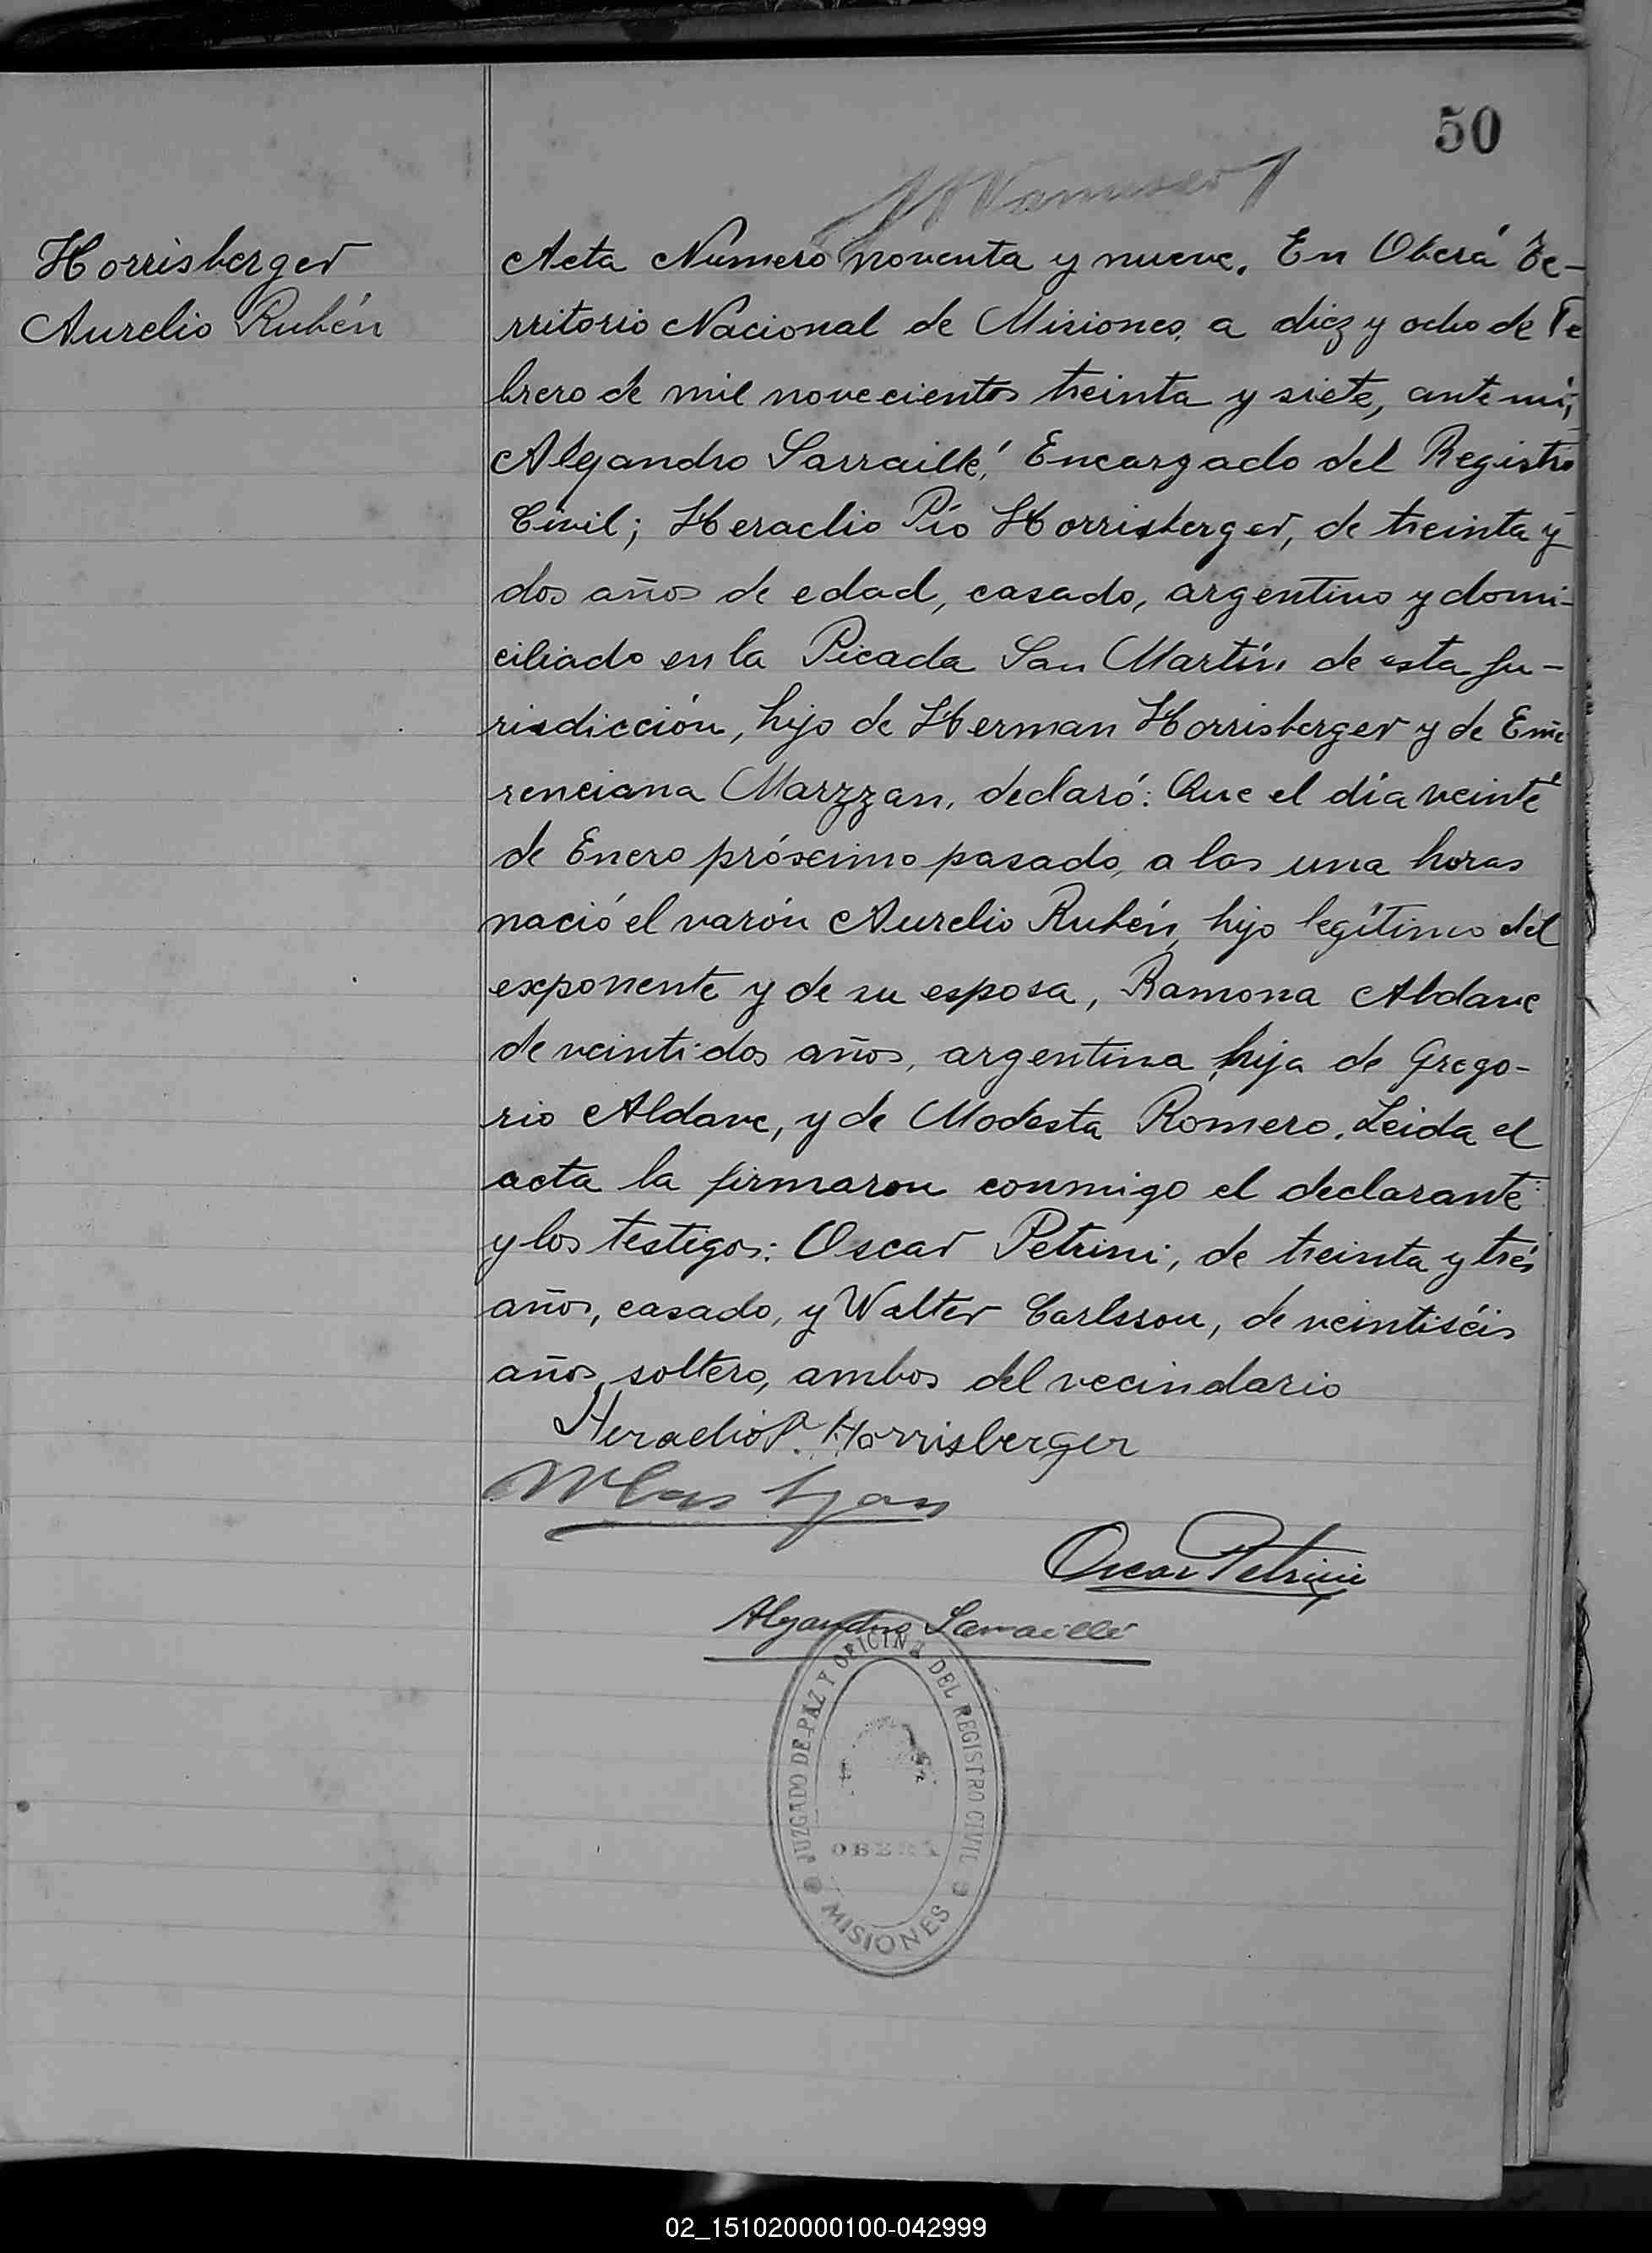 50
Horrisberger
Aurelio Rubén
Acta Número noventa y nueve. En Oberá Te-
rritorio Nacional de Misiones, a diez y ocho de Fe
brero de mil novecientos treinta y siete, ante mí,
Alejandro Sarraillé, Encargado del Registro
Civil; Heraclio Pío Horrisberger, de treinta y
dos años de edad, casado, argentino y domi-
ciliado en la Picada San Martín de esta Ju-
risdicción, hijo de Herman Horrisberger y de Eme
renciana Marzzan, declaró: Que el día veinte
de Enero próximo pasado, a las una horas
nació el varón Aurelio Rubén, hijo legítimo del
exponente y de su esposa, Ramona Aldave
de veintidos años, argentina, hija de Grego-
rio Aldave, y de Modesta Romero. Leida el
acta la firmaron conmigo el declarante
y los testigos: Oscar Petrini, de treinta y trés
años, casado, y Walter Carlsson, de veintiséis
años, soltero, ambos del vecindario
Heraclio P. Horrisberger
Oscar Petrini
Alejandro Sarraillé
JUZGADO DE PAZ Y OFICINA DEL REGISTRO CIVIL
OBERÁ
MISIONES
02_151020000100-042999